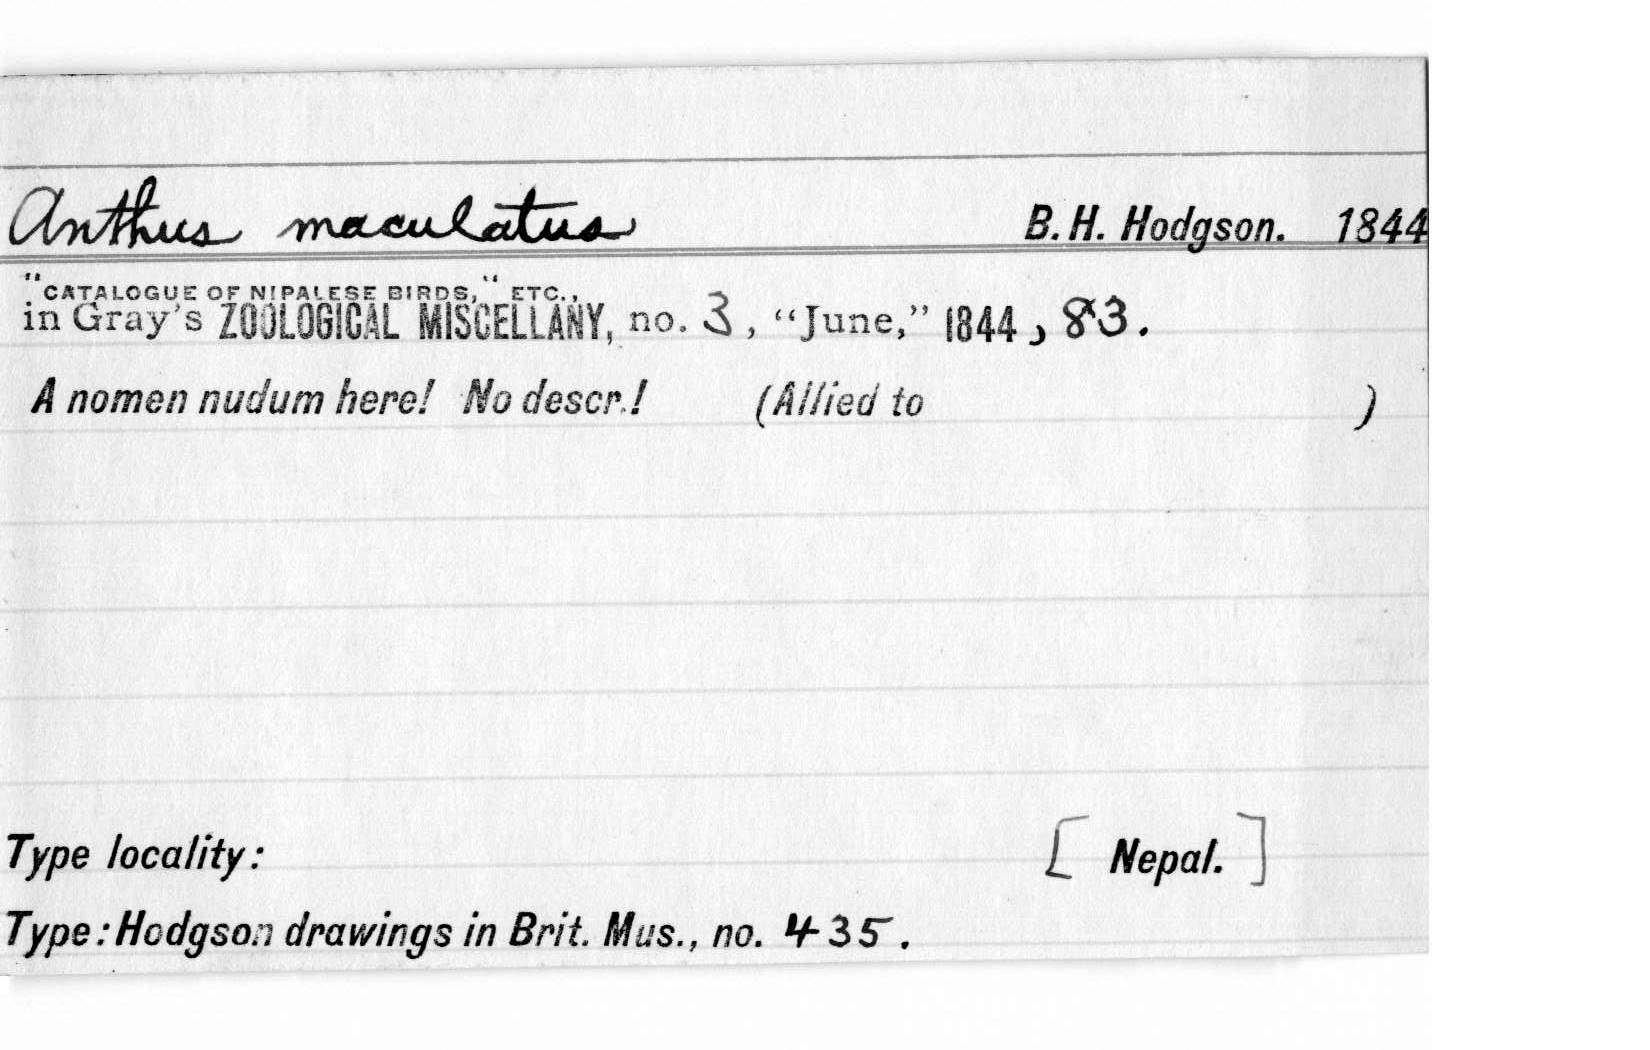 Anthus maculatus B. H. Hodgson. 1844
"CATALOGUE OF NIPALESE BIRDS," ETC.,
in Gray's ZOOLOGICAL MISCELLANY, no. 3, "June," 1844, 83.
A nomen nudum here! No descr.! (Allied to )
Type locality: [ Nepal. ]
Type: Hodgson drawings in Brit. Mus., no. 435.